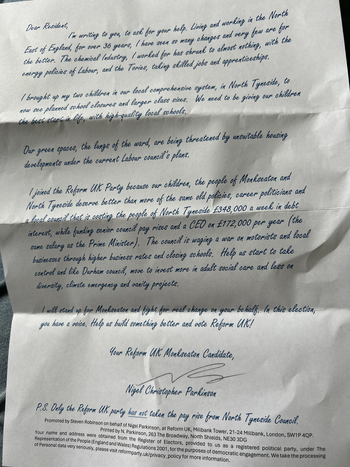 Dear Resident,
I'm writing to you, to ask for your help. Living and working in the North
East of England, for over 36 years, I have seen so many changes and very few are for
the better. The chemical Industry, I worked for has shrunk to almost nothing, with the
energy policies of Labour, and the Tories, taking skilled jobs and apprenticeships.
I brought up my two children in our local comprehensive system, in North Tyneside, to
now see planned school closures and larger class sizes. We need to be giving our children
the best start in life, with high-quality local schools.
Our green spaces, the lungs of the ward, are being threatened by unsuitable housing
developments under the current Labour council's plans.
I joined the Reform UK Party because our children, the people of Monkseaton and
North Tyneside deserve better than more of the same old policies, career politicians and
a local council that is costing the people of North Tyneside £348,000 a week in debt
interest, while funding senior council pay rises and a CEO on £172,000 per year (the
same salary as the Prime Minister). The council is waging a war on motorists and local
businesses through higher business rates and closing schools. Help us start to take
control and like Durham council, move to invest more in adult social care and less on
diversity, climate emergency and vanity projects.
I will stand up for Monkseaton and fight for real change on your behalf. In this election,
you have a voice. Help us build something better and vote Reform UK!
Your Reform UK Monkseaton Candidate,
Nigel Christopher Parkinson
P.S. Only the Reform UK party has not taken the pay rise from North Tyneside Council.
Promoted by Steven Robinson on behalf of Nigel Parkinson, at Reform UK, Millbank Tower, 21-24 Millbank, London, SW1P 4QP.
Printed by N. Parkinson, 263 The Broadway, North Shields, NE30 3DG
Your name and address were obtained from the Register of Electors, provided to us as a registered political party, under The
Representation of the People (England and Wales) Regulations 2001, for the purposes of democratic engagement. We take the processing
of Personal data very seriously, please visit reformparty.uk/privacy_policy for more information.